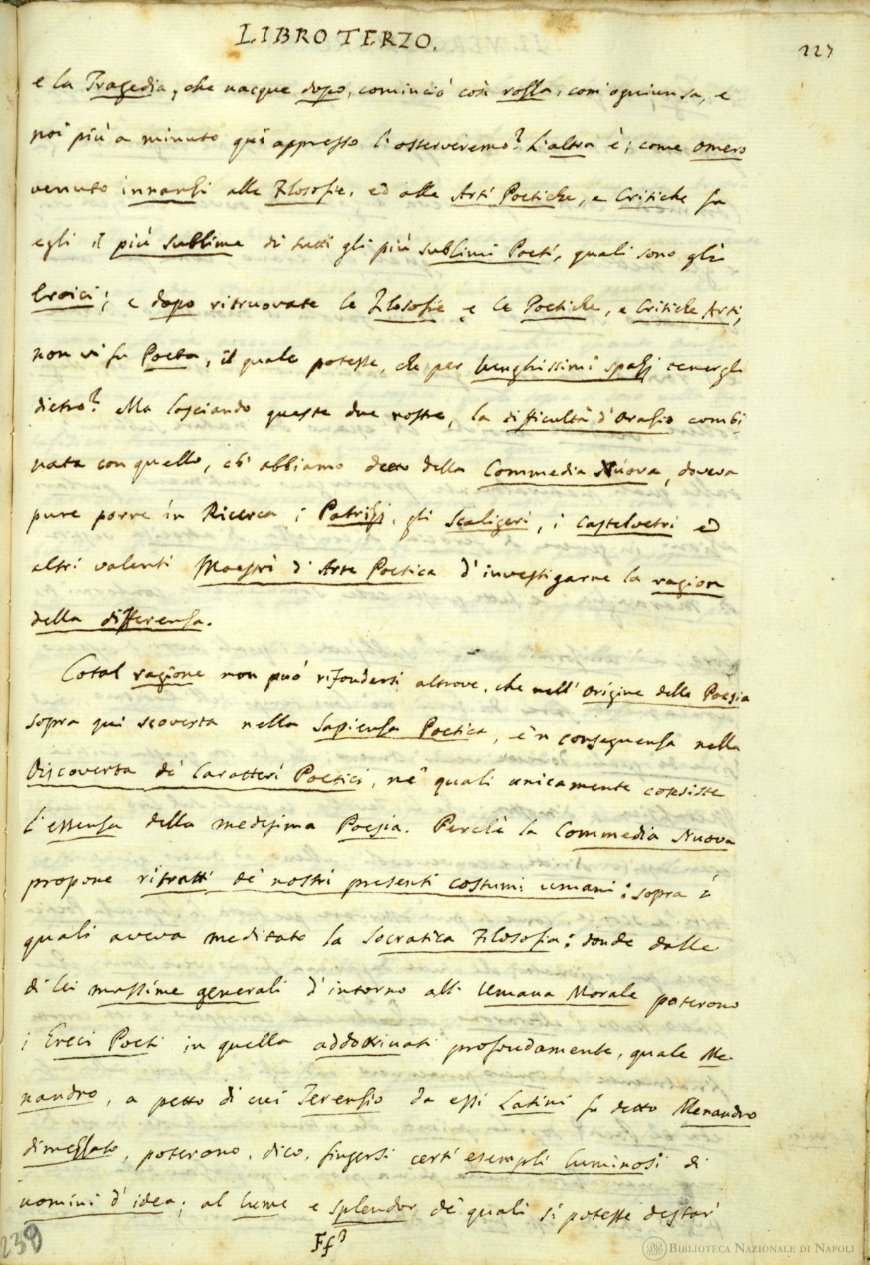 LIBRO TERZO.
227
e la Tragedia, che nacque dopo, cominciò così rozza, com'ogniun sa, e
noi più a minuto qui appresso l'osserveremo? L'altra è, come Omero
venuto innanzi alle Filosofie, ed alle Arti Poetiche, e Critiche fu
egli il più sublime di tutti gli più sublimi Poeti, quali sono gli
Eroici; e dopo ritruovate le Filosofie e le Poetiche, e Critiche Arti,
non vi fu Poeta, il quale potesse, che per lunghissimi spazj tenergli
dietro? Ma lasciando queste due nostre, la difficultà d'Orazio combi-
nata con quello, ch'abbiamo detto della Commedia Nuova, doveva
pure porre in Ricerca i Patrizj, gli Scaligeri, i Castelvetri ed
altri valenti Maestri d'Arte Poetica d'investigarne la ragion
della differenza.
Cotal ragione non può rifondersi altrove, che nell'origine della Poesia
sopra qui scoverta nella Sapienza Poetica, e 'n conseguenza nella
Discoverta de' Caratteri Poetici, ne' quali unicamente consiste
l'essenza della medesima Poesia. Perchè la Commedia Nuova
propone ritratti de' nostri presenti costumi umani: sopra i
quali aveva meditato la Socratica Filosofia: donde dalle
di lei massime generali d'intorno all' Umana Morale poterono
i Greci Poeti in quella addottrinati profondamente, quale Me-
nandro, a petto di cui Terenzio da essi Latini fu detto Menandro
dimezzato, poterono, dico, fingersi certi esempli luminosi di
uomini d'idea; al lume e splendor de' quali si potesse destar'
Ff 3
239
BIBLIOTECA NAZIONALE DI NAPOLI